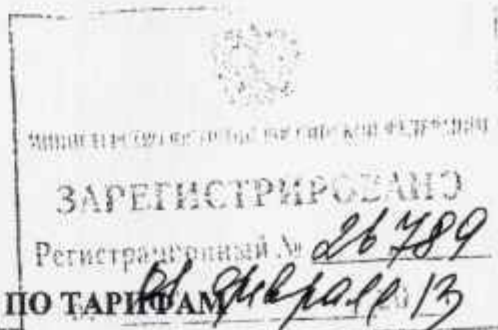 МИНИСТЕРСТВО ЮСТИЦИИ РОССИЙСКОЙ ФЕДЕРАЦИИ
ЗАРЕГИСТРИРОВАНО
Регистрационный № 26789
ПО ТАРИФАМ февраля 2013